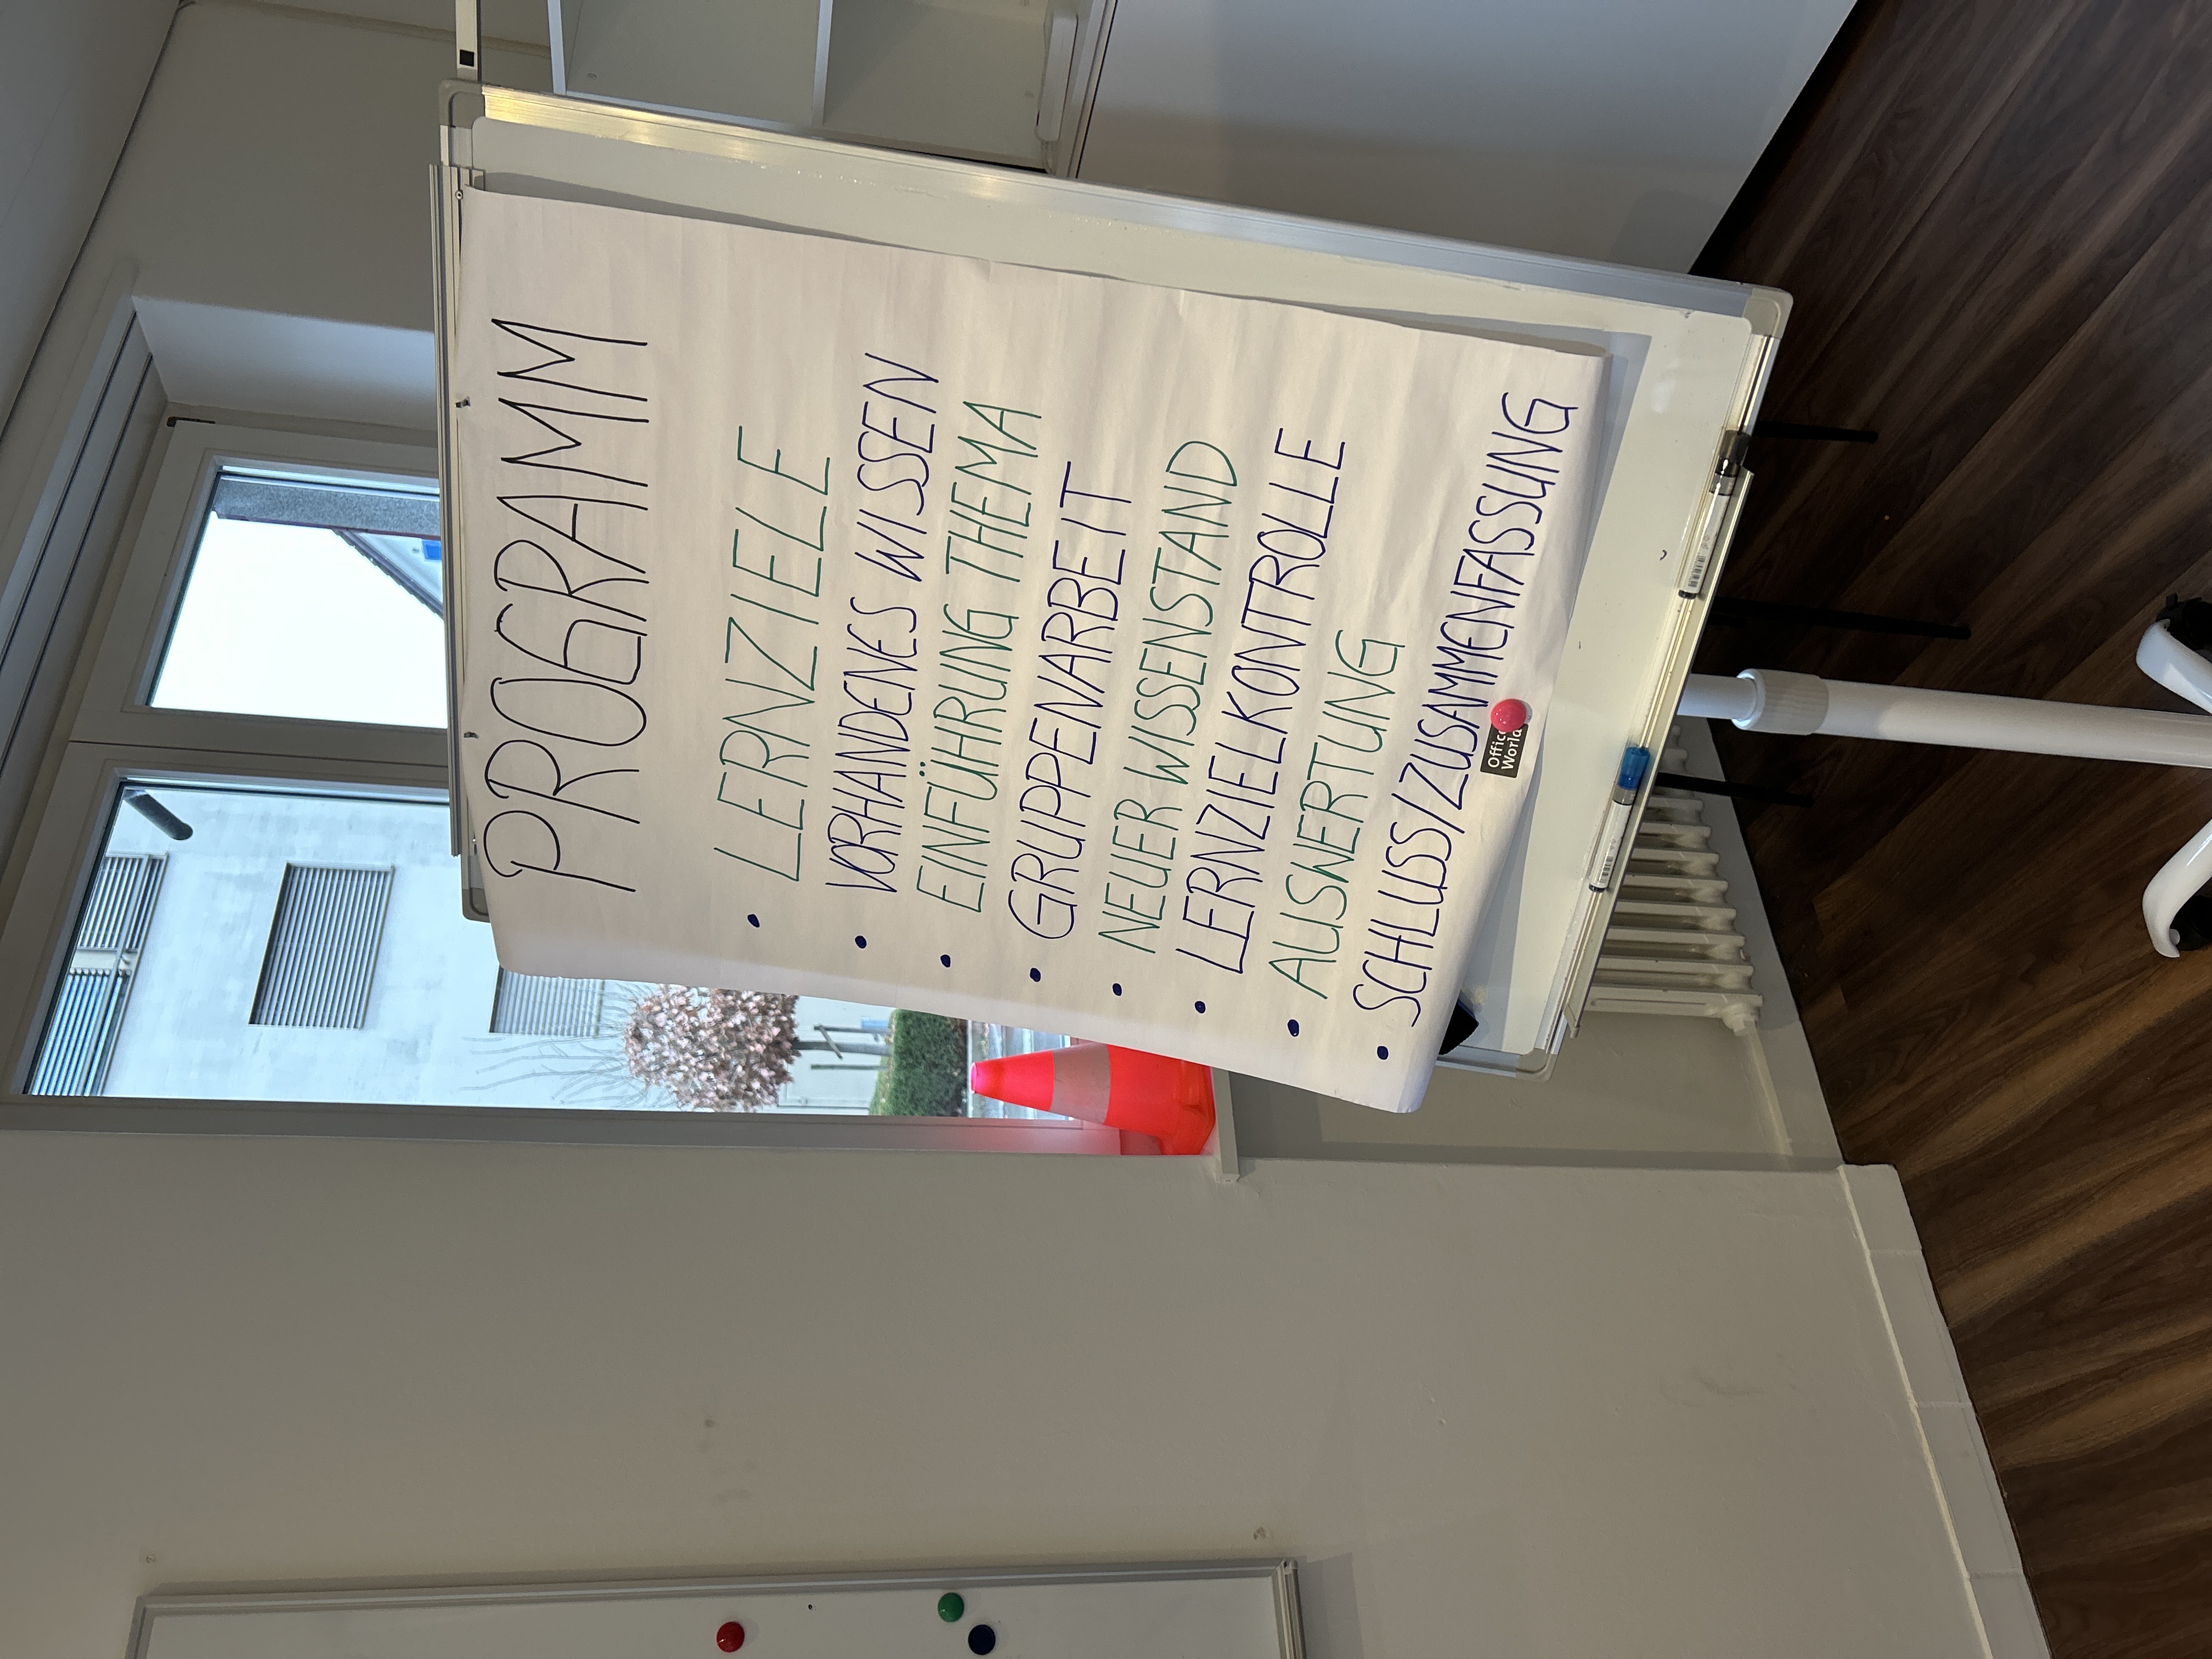 PROGRAMM
• LERNZIELE
• VORHANDENES WISSEN
• EINFÜHRUNG THEMA
• GRUPPENARBEIT
• NEUER WISSENSTAND
• LERNZIELKONTROLLE
• AUSWERTUNG
• SCHLUSS/ZUSAMMENFASSUNG
Office
World